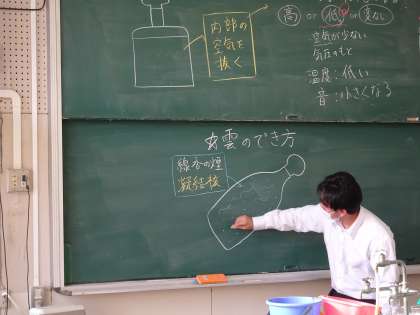 内部の
空気を
抜く
高 or 低 or 変なし
空気が少ない
気圧のもと
温度：低い
音：小さくなる
雲のでき方
線香の煙
凝結核